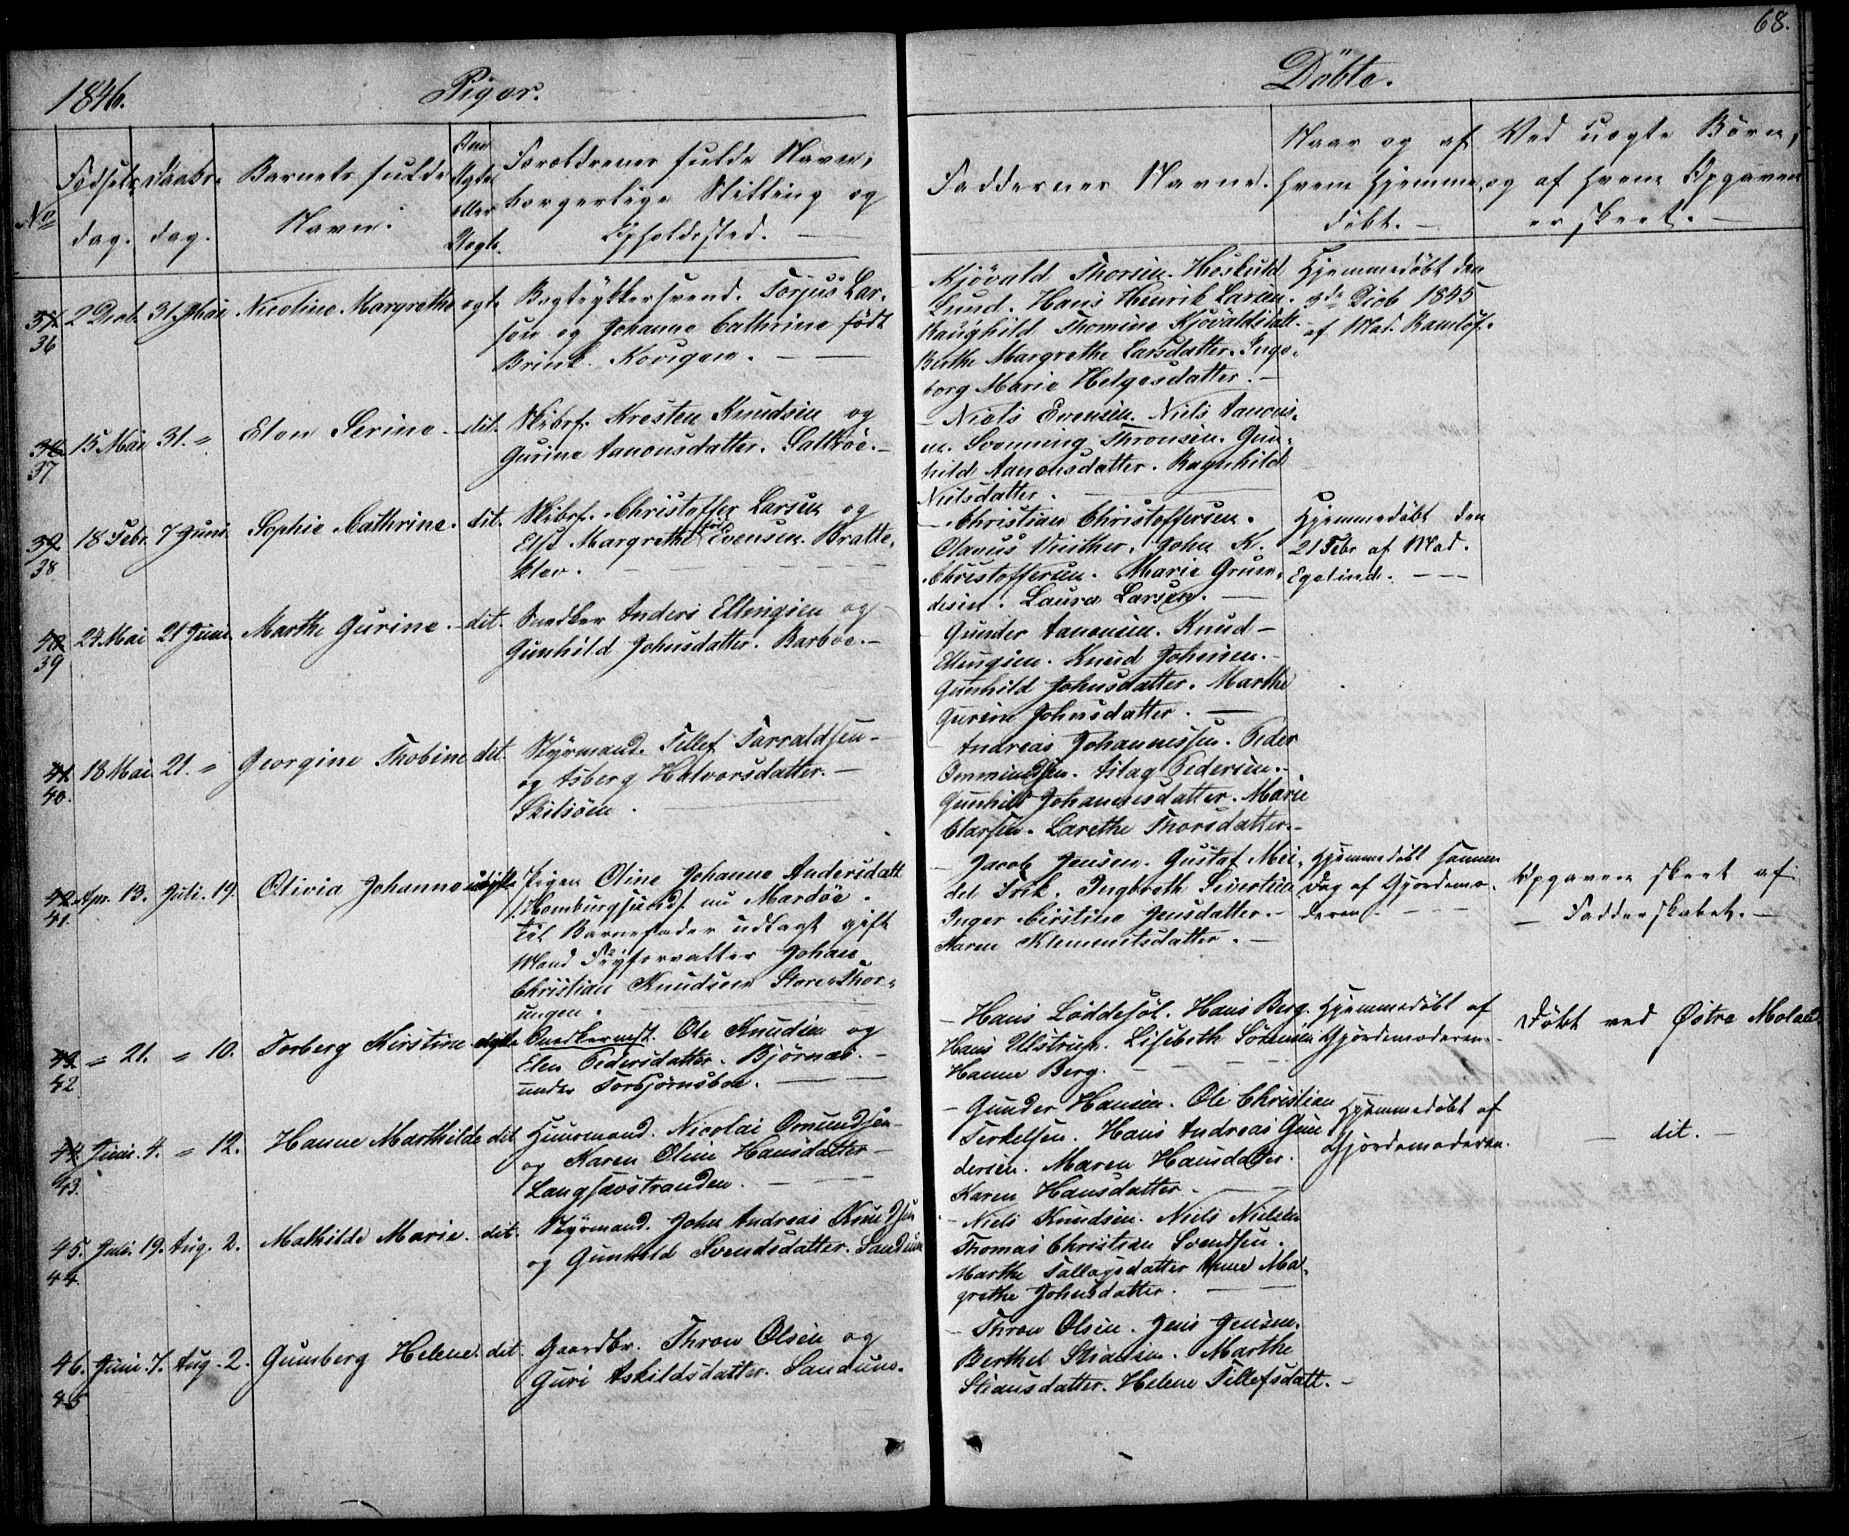 68.
1846.
Piger.
Döbte.
No
Fødsels dag.
Daabs dag.
Barnets fulde Navn.
Om Ægte eller Uægte.
Forældrenes fulde Navn, borgerlige Stilling og Opholdssted.
Faddernes Navne.
Naar og af hvem hjemmedøbt.
Ved uægte Børn, og af hvem Opgaven er skeet.
37.
36
2 Dcbr. 31. Mai
Nicoline Margrethe
ægte
Bogtrykkersvend. Torjus Lar-
sen og Johanne Cathrine født
Brink.
Kjövald Thorsen. Höskuld
Lund. Hans Henrik Larsen.
Raughild Thomine Kjövaldsdatt.
Berthe Margrethe Larsdatter. Inge-
borg Marie Helgesdatter.
Hjemmedöbt den
3de Dcb 1845
af Mad. Ramlöf.
37
15 Mai 31. "
Elen Serine.
dit.
Skibsf. Kresten Knudsen og
Gurine Aanonsdatter. Saltröe.
Niels Evensen. Niels Aanons-
en. Svenning Thronsen. Gun-
hild Aanonsdatter. Ragnhild
Nielsdatter.
39
38
18 Febr. 7 Juni
Sophie Cathrine.
dit.
Skibsf. Christoffer Larsen og
Else Margrethe født Evensen. Bratte-
klev.
Christian Christoffersen.
Olaus Vinther. John K.
Christoffersen. Marie Grun-
desen. Laura Larsen.
Hjemmedöbt den
21 Febr af Mad.
Egelind.
40
39
24 Mai 21 Juni.
Marthe Gurine.
dit.
Snedker Anders Ellingsen og
Gunhild Johnsdatter. Barboe.
Gunder Aanonsen. Knud
Ellingsen. Knud Johnsen.
Gunhild Johnsdatter. Marthe
Gurine Johnsdatter.
41
40.
18 Mai 21. "
Georgine Thobine
dit.
Styrmand. Tellef Tarraldsen
og Asberg Halvorsdatter.
Skilsöen.
Andreas Johannessen. Peder
Ommundsen. Aslag Pedersen.
Gunhild Johannesdatter. Marie
Olassen. Larethe Thorsdatter.
42.
41.
Apr. 13. Juli. 19.
Olivia Johanne
uægte
Pigen Oline Johanne Andersdatt
/: Homburgsund :/ nu Mardöe.
til Barnefader udlagt gift
Mand Fyrforvalter Johan
Christian Knudsen Store Thor-
ungen.
Jacob Jensen. Gustaf Mei-
del Frik. Ingbreth Sivertsen
Inger Kirstine Jensdatter.
Maren Klemmetsdatter.
Hjemmedöbt samme
Dag af Gjordemo-
deren.
Opgaven skeet af
Fadderskabet.
43
42
" 21. " 10.
Torberg Kirstine
ægte
Snedkermst. Ole Knudsen og
Elen Pedersdatter. Björnæs.
under Torbjörnsboe.
Hans Löddesöl. Hans Berg.
Hans Ulstrup. Lisebeth Sörensen
Hanne Berg.
Hjemmedöbt af
Gjordemoderen.
Döbt ved Østre Moland
44
43.
Juni. 4. " 12.
Hanne Marthilde
dit
Huusmand. Nicolai Omundsen
og Karen Oline Hansdatter
Langsævstranden.
Gunder Hansen. Ole Christian
Terkelsen. Hans Andreas Gun-
dersen. Maren Hansdatter.
Karen Hansdatter.
Hjemmedöbt af
Gjordemoderen.
dit.
45.
44.
Juli. 19. Aug. 2.
Mathilde Marie.
dit.
Styrmand. John Andreas Knudsen
og Gunhild Svendsdatter. Sandum
Niels Knudsen. Niels Nielsen
Thomas Christian Svendsen.
Marthe Tallagsdatter Anne Ma-
grethe Johnsdatter.
46.
45
Juni. 7. Aug. 2.
Gunsberg Helene.
dit
Gaardbr. Thron Olsen og
Guri Askildsdatter. Sandum.
Thron Olsen. Jens Jensen.
Berthel Stiansen. Marthe
Stiansdatter. Helene Tellefsdatt.